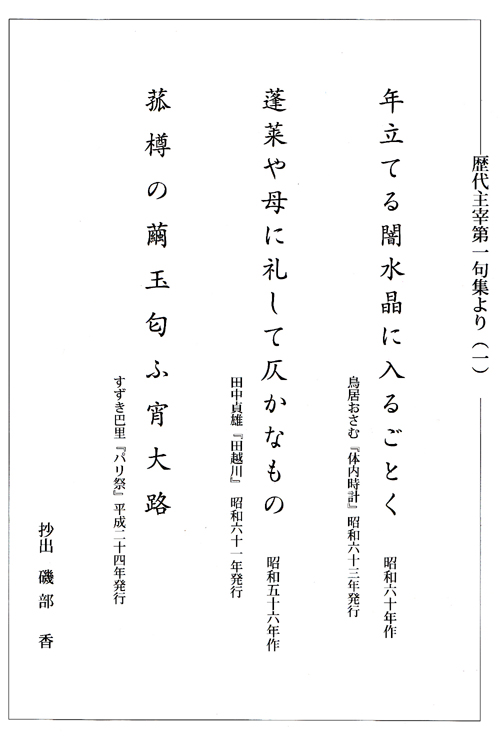 歴代主宰第一句集より（一）
年立てる闇水晶に入るごとく　昭和六十年作
鳥居おさむ『体内時計』昭和六十三年発行
蓬莱や母に礼して仄かなもの　昭和五十六年作
田中貞雄『田越川』　昭和六十一年発行
菰樽の繭玉匂ふ宵大路
すずき巴里『パリ祭』平成二十四年発行
抄出　磯部　香